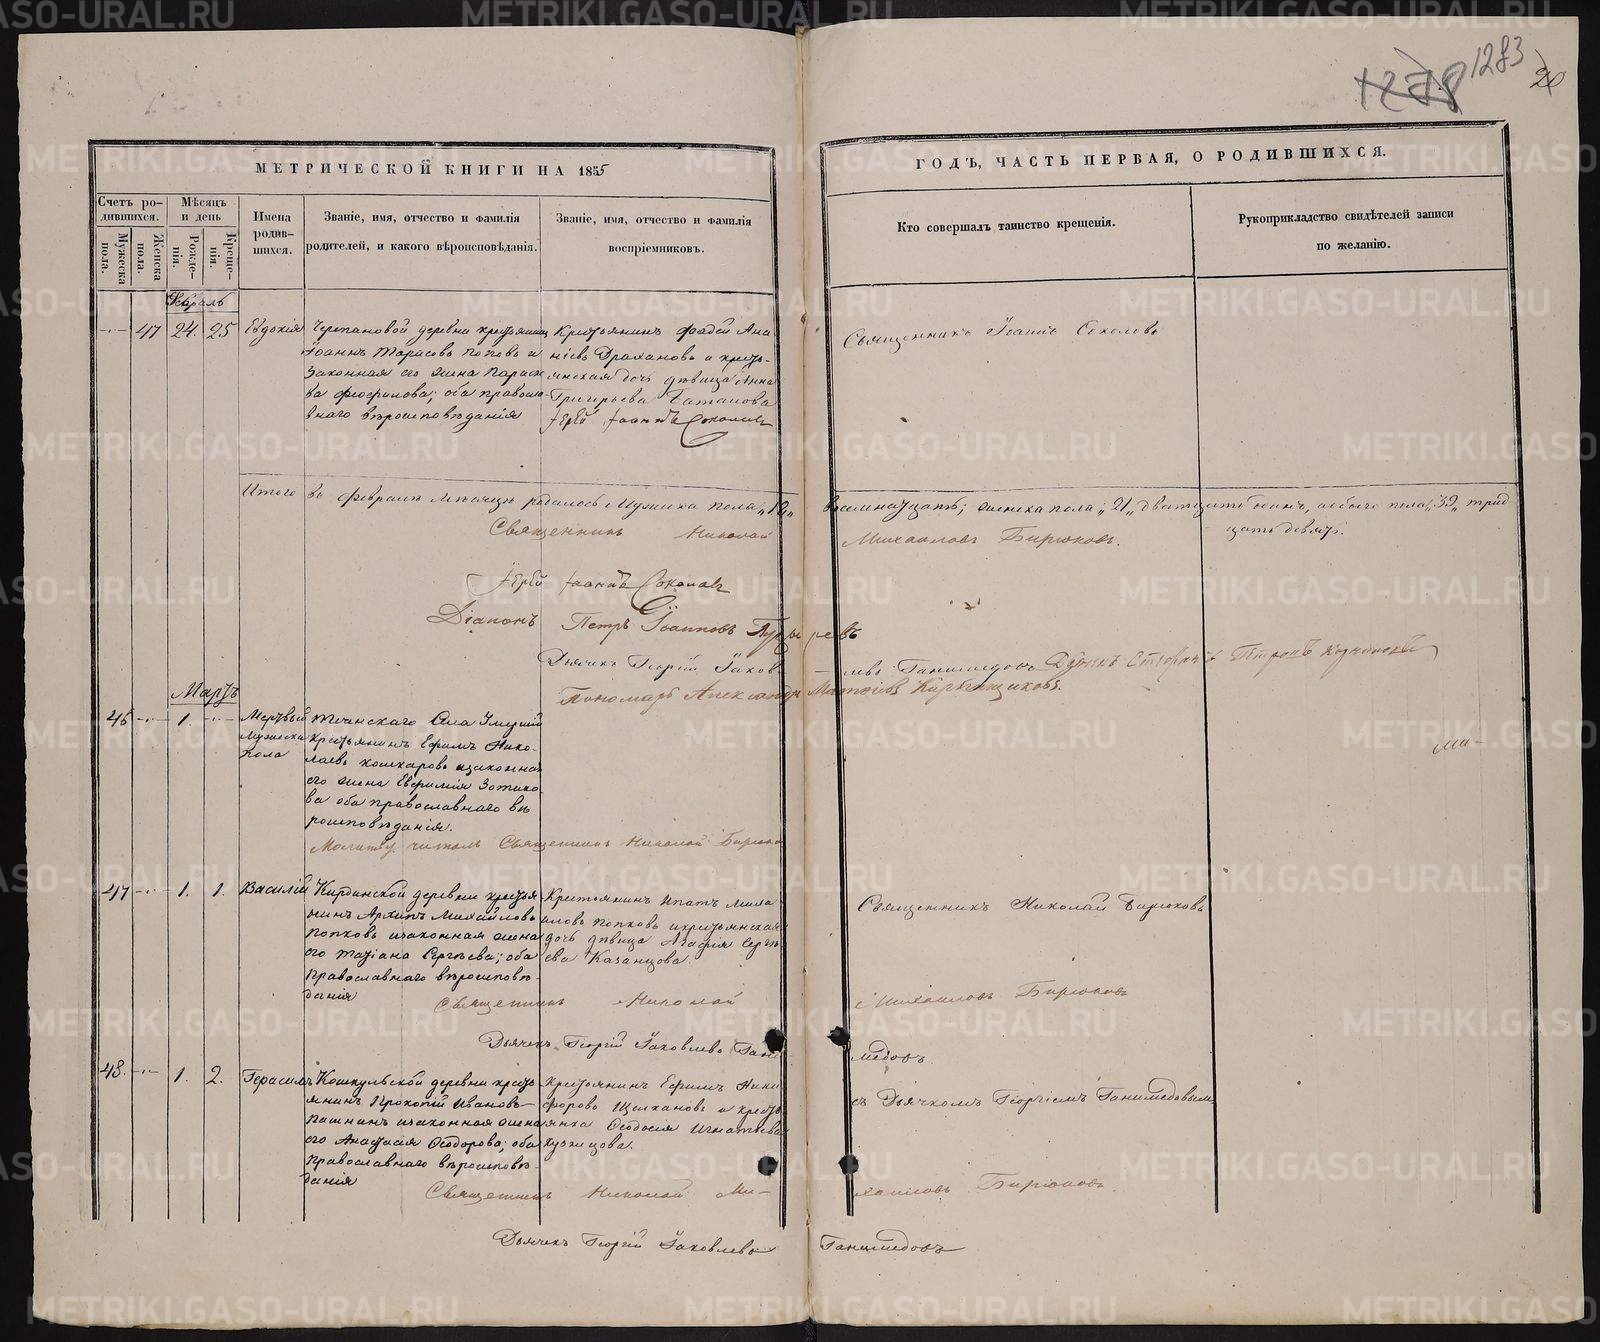 1283
20
МЕТРИЧЕСКОЙ КНИГИ НА 1855
ГОДЪ, ЧАСТЬ ПЕРВАЯ, О РОДИВШИХСЯ.
Счетъ родившихся.
Мужеска пола.
Женска пола.
Мѣсяцъ и день
Рожденія.
Крещенія.
Имена родившихся.
Званіе, имя, отчество и фамилія
родителей, и какого вѣроисповѣданія.
Званіе, имя, отчество и фамилія
воспріемниковъ.
Кто совершалъ таинство крещенія.
Рукоприкладство свидѣтелей записи
по желанію.
Февраль
47 24. 25 Евдокія
Черепановой деревни крестьянинъ
Іоаннъ Тарасовъ Поповъ и
законная его жена Параскева
Феофилова; оба православнаго
вѣроисповѣданія
Крестьянинъ Фадей
и крестьянская дочь дѣвица Анна
Григорьева
Іерей Іоаннъ Соколовъ
Священникъ Іоаннъ Соколовъ
Итого въ февралѣ мѣсяцѣ родилось мужска пола „18„ восемнатцать; женска пола „21„ двадцать одинъ, а обоего пола „39„ тридцать девять.
Священникъ Николай Михаиловъ Бирюковъ.
Іерей Іоаннъ Соколовъ
Діаконъ Петръ Іоанновъ
Дьячекъ Георгій Іаковлевъ Ганимедовъ
Пономарь Александръ
Мартъ
46 1. Мертвый
мужеска
пола
Теченскаго села
крестьянинъ Ефимъ Николаевъ
Кошкаровъ и законная
его жена Евфимія Зотикова
оба православнаго вѣроисповѣданія.
Молитву читалъ Священникъ Николай Бирюковъ
47 1. 1. Василій
Кирдинской деревни крестьянинъ
Архипъ Михайловъ
Попковъ и законная жена
его Татіана Сергѣева; оба
православнаго вѣроисповѣданія
Крестьянинъ Ипатъ Михаиловъ
Попковъ и крестьянская
дочь дѣвица Агафія Сергѣева
Казанцова.
Священникъ Николай Бирюковъ
Священникъ Николай Михаиловъ Бирюковъ
Дьячекъ Георгій Іаковлевъ Ганимедовъ.
48. 1. 2. Герасимъ
Кошкульской деревни крестьянинъ
Прокопій Ивановъ
Пашнинъ и законная жена
его Анастасія Ѳеодорова; оба
православнаго вѣроисповѣданія
Крестьянинъ Ефимъ Никифоровъ
и крестьянка
Ѳеодосія Игнатьева
Кузнецова.
съ Дьячкомъ Георгіемъ Ганимедовымъ
Священникъ Николай Михаиловъ Бирюковъ
Дьячекъ Георгій Іаковлевъ Ганимедовъ
METRIKI.GASO-URAL.RU